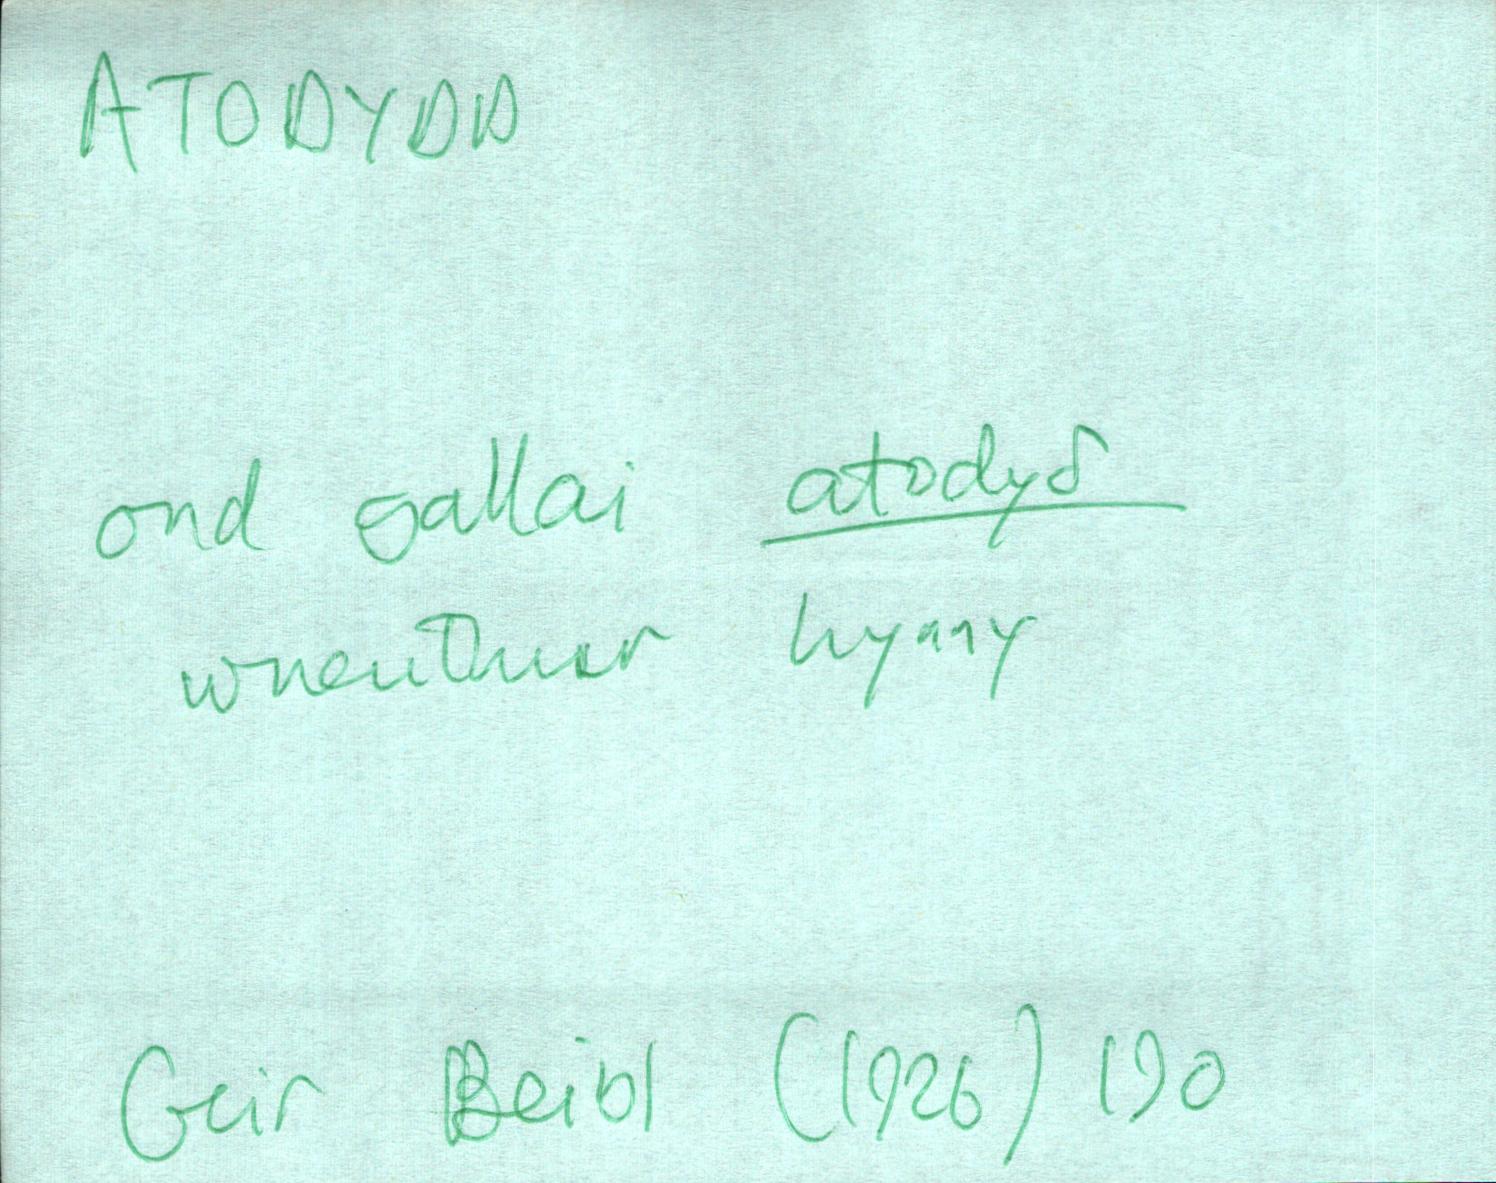 ATODYDD
ond gallai atodyδ
wneuthur hynny
Geir Beibl (1926) 190